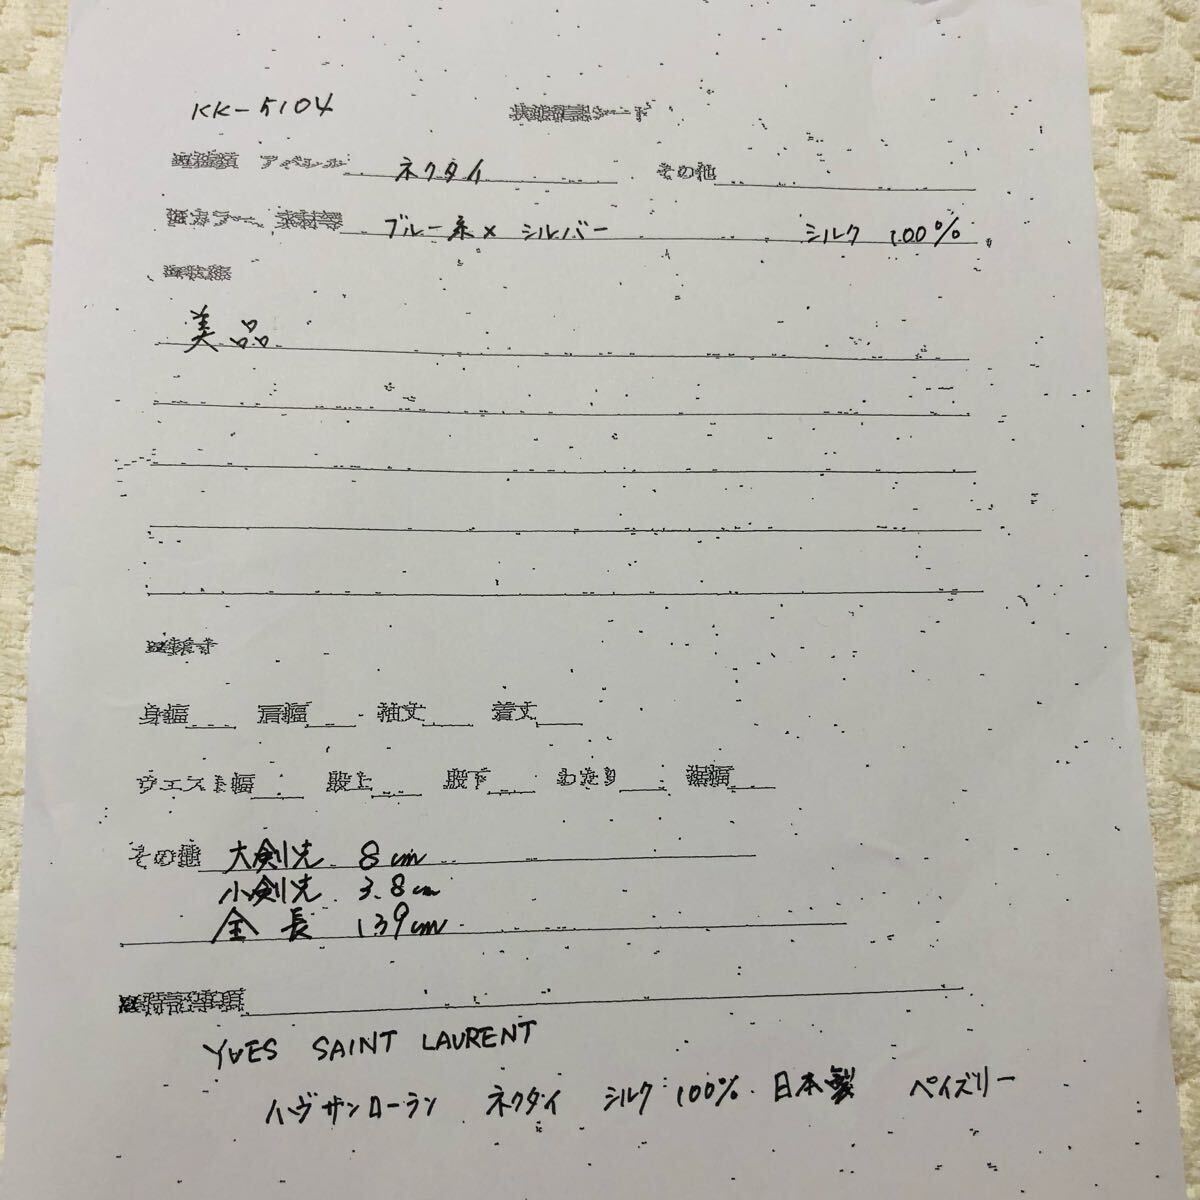 KK-5104 状態確認シート
アパレル ネクタイ その他
カラー、素材等 ブルー系× シルバー シルク 100%
状態
美品
身幅 肩幅 袖丈 着丈
ウエスト幅 股上 股下 わたり 裾幅
その他 大剣先 8cm
小剣先 3.8cm
全長 139cm
特記事項
YVES SAINT LAURENT
ネクタイ シルク 100% 日本製 ペイズリー